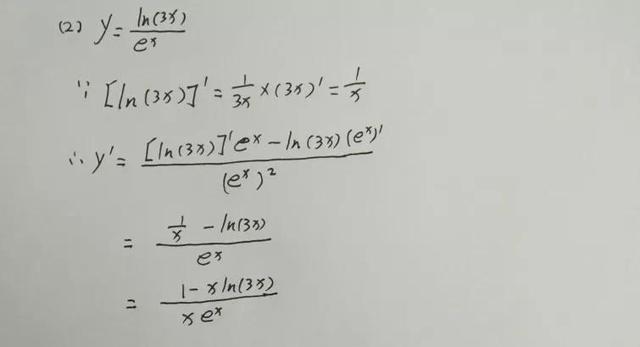 (2) y = ln(3x)/e^x
∵ [ln(3x)]' = 1/3x × (3x)' = 1/x
∴ y' = [ln(3x)]'e^x - ln(3x)(e^x)'/(e^x)^2
= (1/x - ln(3x))/e^x
= (1 - x ln(3x))/(x e^x)